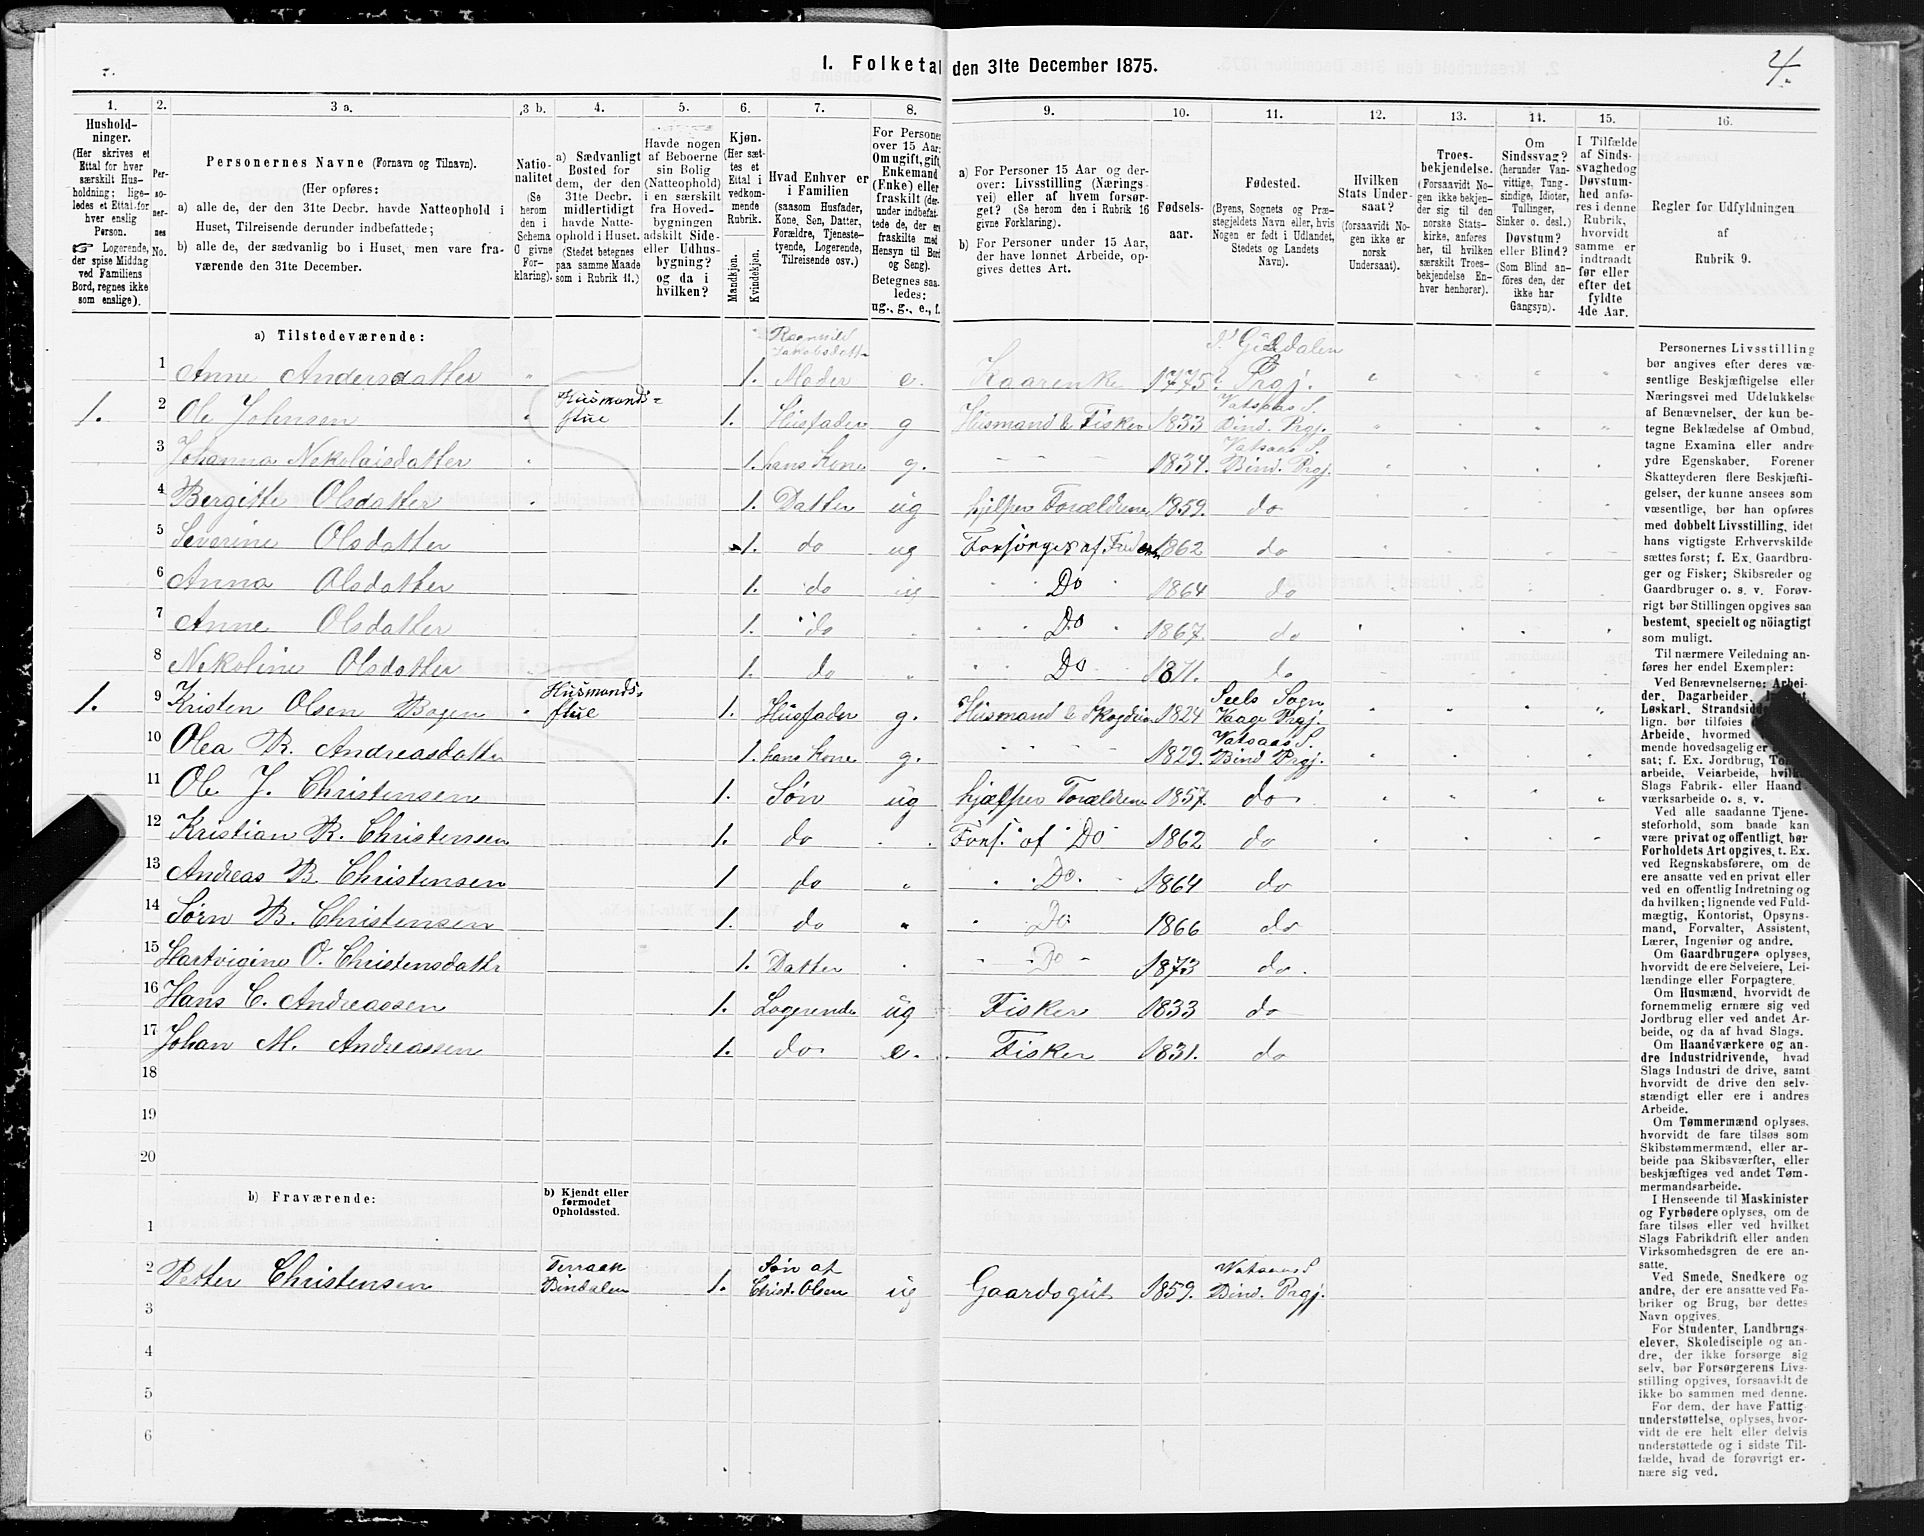 1. Folketal den 31te December 1875.
4.
1.
Hushold-
ninger.
(Her skrives et
Ettal for hver
særskilt Hus-
holdning; lige-
ledes et Ettal for
hver enslig
Person.
☞ Logerende,
der spise Middag
ved Familiens
Bord, regnes ikke
som enslige).
2.
Per-
so-
ner-
nes
No.
3 a.
Personernes Navne (Fornavn og Tilnavn).
(Her opføres:
a) alle de, der den 31te Decbr. havde Natteophold i
Huset, Tilreisende derunder indbefattede;
b) alle de, der sædvanlig bo i Huset, men vare fra-
værende den 31te December.
3 b.
Natio-
nalitet
(Se
herom
den i
Schema
C givne
For-
klaring).
4.
a) Sædvanligt
Bosted for
dem, der den
31te Decbr.
midlertidigt
havde Natte-
ophold i Huset.
(Stedet betegnes
paa samme Maade
som i Rubrik 11.)
5.
Havde nogen
af Beboerne
sin Bolig
(Natteophold)
i en særskilt
fra Hoved-
bygningen
adskilt Side-
eller Udhus-
bygning?
og da i
hvilken?
6.
Kjøn.
(Her sæt-
tes et
Ettal i
vedkom-
mende
Rubrik.
Mandkjøn.
Kvindekjøn.
7.
Hvad Enhver er
i Familien
(saasom Husfader,
Kone, Søn, Datter,
Forældre, Tjeneste-
tyende, Logerende,
Tilreisende osv.)
8.
For Personer
over 15 Aar:
Om ugift, gift,
Enkemand
(Enke) eller
fraskilt (der-
under indbefat-
tede de, der ere
fraskilte med
Hensyn til Bord
og Seng).
Betegnes saa-
ledes:
ug., g., e., f.
9.
a) For Personer 15 Aar og der-
over: Livsstilling (Nærings-
vei) eller af hvem forsør-
get? (Se herom den i Rubrik 16
givne Forklaring).
b) For Personer under 15 Aar,
der have lønnet Arbeide, op-
gives dettes Art.
10.
Fødsels-
aar.
11.
Fødested.
(Byens, Sognets og Præ-
stegjeldets Navn eller, hvis
Nogen er født i Udlandet,
Stedets og Landets
Navn).
12.
Hvilken
Stats Under-
saat?
(forsaavidt No-
gen ikke er
norsk
Undersaat).
13.
Troes-
bekjendelse.
(Forsaavidt No-
gen ikke bekjen-
der sig til den
norske Stats-
kirke, anføres
her, til hvilken
særskilt Troes-
bekjendelse En-
hver henhører).
14.
Om
Sindssvag?
(herunder Van-
vittige, Tung-
sindige, Idioter,
Tullinger,
Sinker o. desl.)
Døvstum?
eller Blind?
(Som Blind an-
føres den, der
ikke har
Gangsyn).
15.
I Tilfælde
af Sinds-
svaghed og
Døvstum-
hed anfø-
res i denne
Rubrik,
hvorvidt
samme er
indtraadt
før eller
efter det
fyldte
4de Aar.
16.
Regler for Udfyldningen
af
Rubrik 9.
a) Tilstedeværende:
1 Anne Andersdatter 1. Moder e. Kaarenke 1775? Prgj.
1. 2 Ole Johnsen Husmands-stue 1. Husfader g Husmand & Fisker 1833 Vatsaas S. Bind. Prgj.
3 Johanna Nekolaisdatter 1. hans Kone g. 1834. Vatsaas S. Bind. Prgj.
4 Bergitte Olsdatter 1. Datter ug hjelper Forældrene 1859. do
5 Severine Olsdatter 1. do ug Forsörges af Faderen 1862 do
6 Anna Olsdatter 1. do ug Do 1864 do
7 Anne Olsdatter 1. do Do 1867. do
8 Nekoline Olsdatter 1. do Do 1871. do
1. 9 Kristen Olsen Bogen Husmands-stue 1. Husfader g. Husmand & 1824 Seels Sogn Vaage Prgj.
10 Olea R. Andreasdatter 1. hans Kone g. 1829. Vatsaas S. Bind Prgj.
11 Ole J. Christensen 1. Søn ug hjælper Forældrene 1857. do
12 Kristian R. Christensen 1. do Fors. af Do 1862 do
13 Andreas B. Christensen 1 do Do. 1864 do
14 Sørn B. Christensen 1. do Do 1866 do
15 Hartvigine O. Christensdattr 1. Datter Do 1873 do.
16 Hans C. Andreassen 1. Logerende ug Fisker 1833 do
17 Johan M. Andreassen 1. do e. Fisker 1831. do
18
19
20
b) Fraværende:
b) Kjendt eller
formodet
Opholdssted.
1
2 Petter Christensen Terraak Bindalen 1. Søn af Christ. Olsen ug Gaardsgut 1859. Vatsaas S Bind. Prgj.
3
4
5
6
Personernes Livsstilling
bør angives efter deres væ-
sentlige Beskjæftigelse eller
Næringsvei med Udelukkelse
af Benævnelser, der kun be-
tegne Beklædelse af Ombud,
tagne Examina eller andre
ydre Egenskaber. Forener
Skatteyderen flere Beskjæfti-
gelser, der kunne ansees som
væsentlige, bør han opføres
med dobbelt Livsstilling, idet
hans vigtigste Erhvervskilde
sættes først; f. Ex. Gaardbru-
ger og Fisker; Skibsreder og
Gaardbruger o. s. v. Forøv-
rigt bør Stillingen opgives saa
bestemt, specielt og nöiagtigt
som muligt.
Til nærmere Veiledning an-
føres her endel Exempler:
Ved Benævnelserne: Arbei-
der, Dagarbeider,
Løskarl, Strandsidder
lign. bør tilføies
Arbeide, hvormed
mende hovedsagelig er
sat; f. Ex. Jordbrug,
arbeide, Veiarbeide, hvilket
Slags Fabrik- eller Haand-
værksarbeide o. s. v.
Ved alle saadanne Tjene-
steforhold, som baade kan
være privat og offentligt, bør
Forholdets Art opgives, t. Ex.
ved Regnskabsførere, om de
ere ansatte ved en privat eller
ved en offentlig Indretning og
da hvilken; lignende ved Fuld-
mægtig, Kontorist, Opsyns-
mand, Forvalter, Assistent,
Lærer, Ingeniør og andre.
Om Gaardbrugere oplyses,
hvorvidt de ere Selveiere, Lei-
lændinge eller Forpagtere.
Om Husmænd, hvorvidt de
fornemmelig ernære sig ved
Jordbrug eller ved andet Ar-
beide, og da af hvad Slags.
Om Haandværkere og an-
dre Industridrivende, hvad
Slags Industri de drive, samt
hvorvidt de drive den selv-
stændigt eller ere i andres
Arbeide.
Om Tømmermænd oplyses,
hvorvidt de fare tilsøs som
Skibstømmermænd, eller ar-
beide paa Skibsværfter, eller
beskjæftiges ved andet Tøm-
mermandsarbeide.
I Henseende til Maskinister
og Fyrbødere oplyses, om de
fare tilsøs eller ved hvilket
Slags Fabrikdrift eller anden
Virksomhedsgren de ere an-
satte.
Ved Smede, Snedkere og
andre, der ere ansatte ved Fa-
briker og Brug, bør dettes
Navn opgives.
For Studenter, Landbrugs-
elever, Skoledisciple og an-
dre, der ikke forsørge sig
selv, bør Forsørgerens Livs-
stilling opgives, forsaavidt de
ikke bo sammen med denne.
For dem, der have Fattig-
understøttelse, oplyses, hvor-
vidt de ere helt eller delvis
understøttede og i sidste Til-
fælde, hvad de forøvrigt er-
nære sig ved.